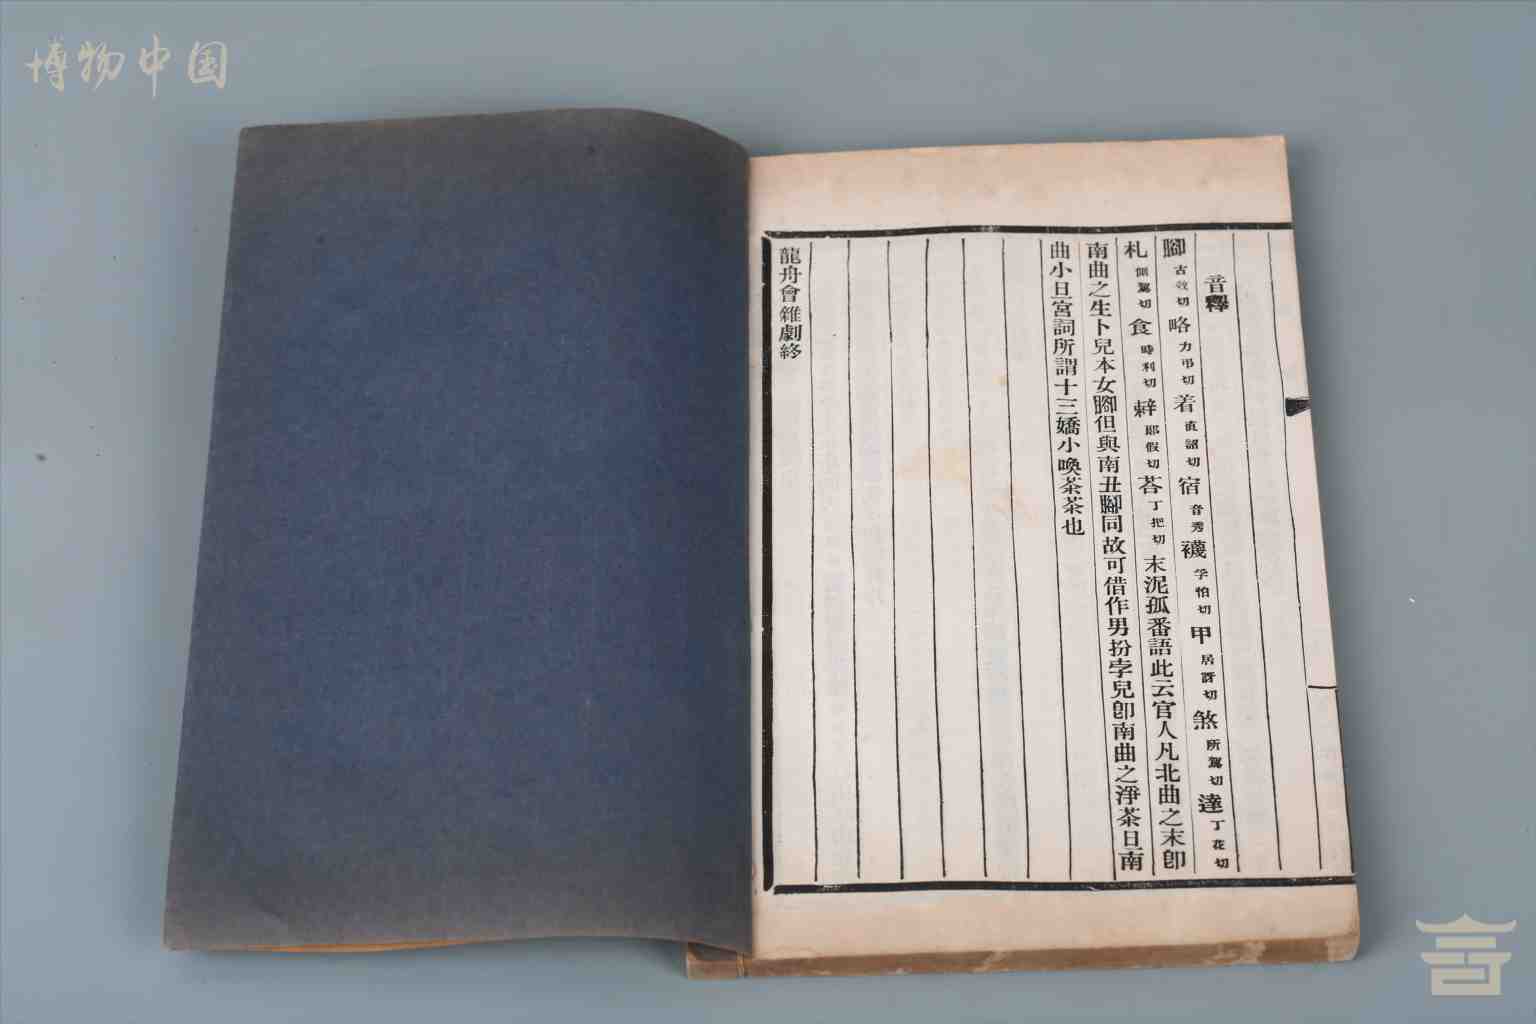 博物中国
音釋
腳古效切略力弔切着直詔切宿音秀襪孚怕切甲居訝切煞所駕切達丁花切
札側駕切食時利切辢郎假切荅丁把切末泥孤番語此云官人凡北曲之末卽
南曲之生卜兒本女腳但與南丑腳同故可借作男扮孛兒卽南曲之淨茶旦南
曲小旦宮詞所謂十三嬌小喚茶茶也
龍舟會雜劇終